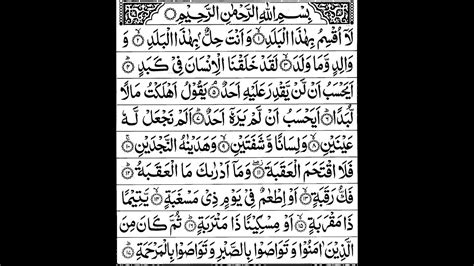 بِسْمِ اللهِ الرَّحْمٰنِ الرَّحِيْمِ
لَآ اُقْسِمُ بِهٰذَا الْبَلَدِ ۝۱ وَاَنْتَ حِلٌّۢ بِهٰذَا الْبَلَدِ ۝۲ وَ
وَالِدٍ وَّمَا وَلَدَ ۝۳ لَقَدْ خَلَقْنَا الْاِنْسَانَ فِيْ كَبَدٍ ۝۴
اَيَحْسَبُ اَنْ لَّنْ يَّقْدِرَ عَلَيْهِ اَحَدٌ ۝۵ يَقُوْلُ اَهْلَكْتُ مَالًا
لُّبَدًا ۝۶ اَيَحْسَبُ اَنْ لَّمْ يَرَهٗٓ اَحَدٌ ۝۷ اَلَمْ نَجْعَلْ لَّهٗ
عَيْنَيْنِ ۝۸ وَلِسَانًا وَّشَفَتَيْنِ ۝۹ وَهَدَيْنٰهُ النَّجْدَيْنِ ۝۱۰
فَلَا اقْتَحَمَ الْعَقَبَةَ ۝۱۱ وَمَآ اَدْرٰىكَ مَا الْعَقَبَةُ ۝۱۲
فَكُّ رَقَبَةٍ ۝۱۳ اَوْ اِطْعٰمٌ فِيْ يَوْمٍ ذِيْ مَسْغَبَةٍ ۝۱۴ يَّتِيْمًا
ذَا مَقْرَبَةٍ ۝۱۵ اَوْ مِسْكِيْنًا ذَا مَتْرَبَةٍ ۝۱۶ ثُمَّ كَانَ مِنَ
الَّذِيْنَ اٰمَنُوْا وَتَوَاصَوْا بِالصَّبْرِ وَتَوَاصَوْا بِالْمَرْحَمَةِ ۝۱۷